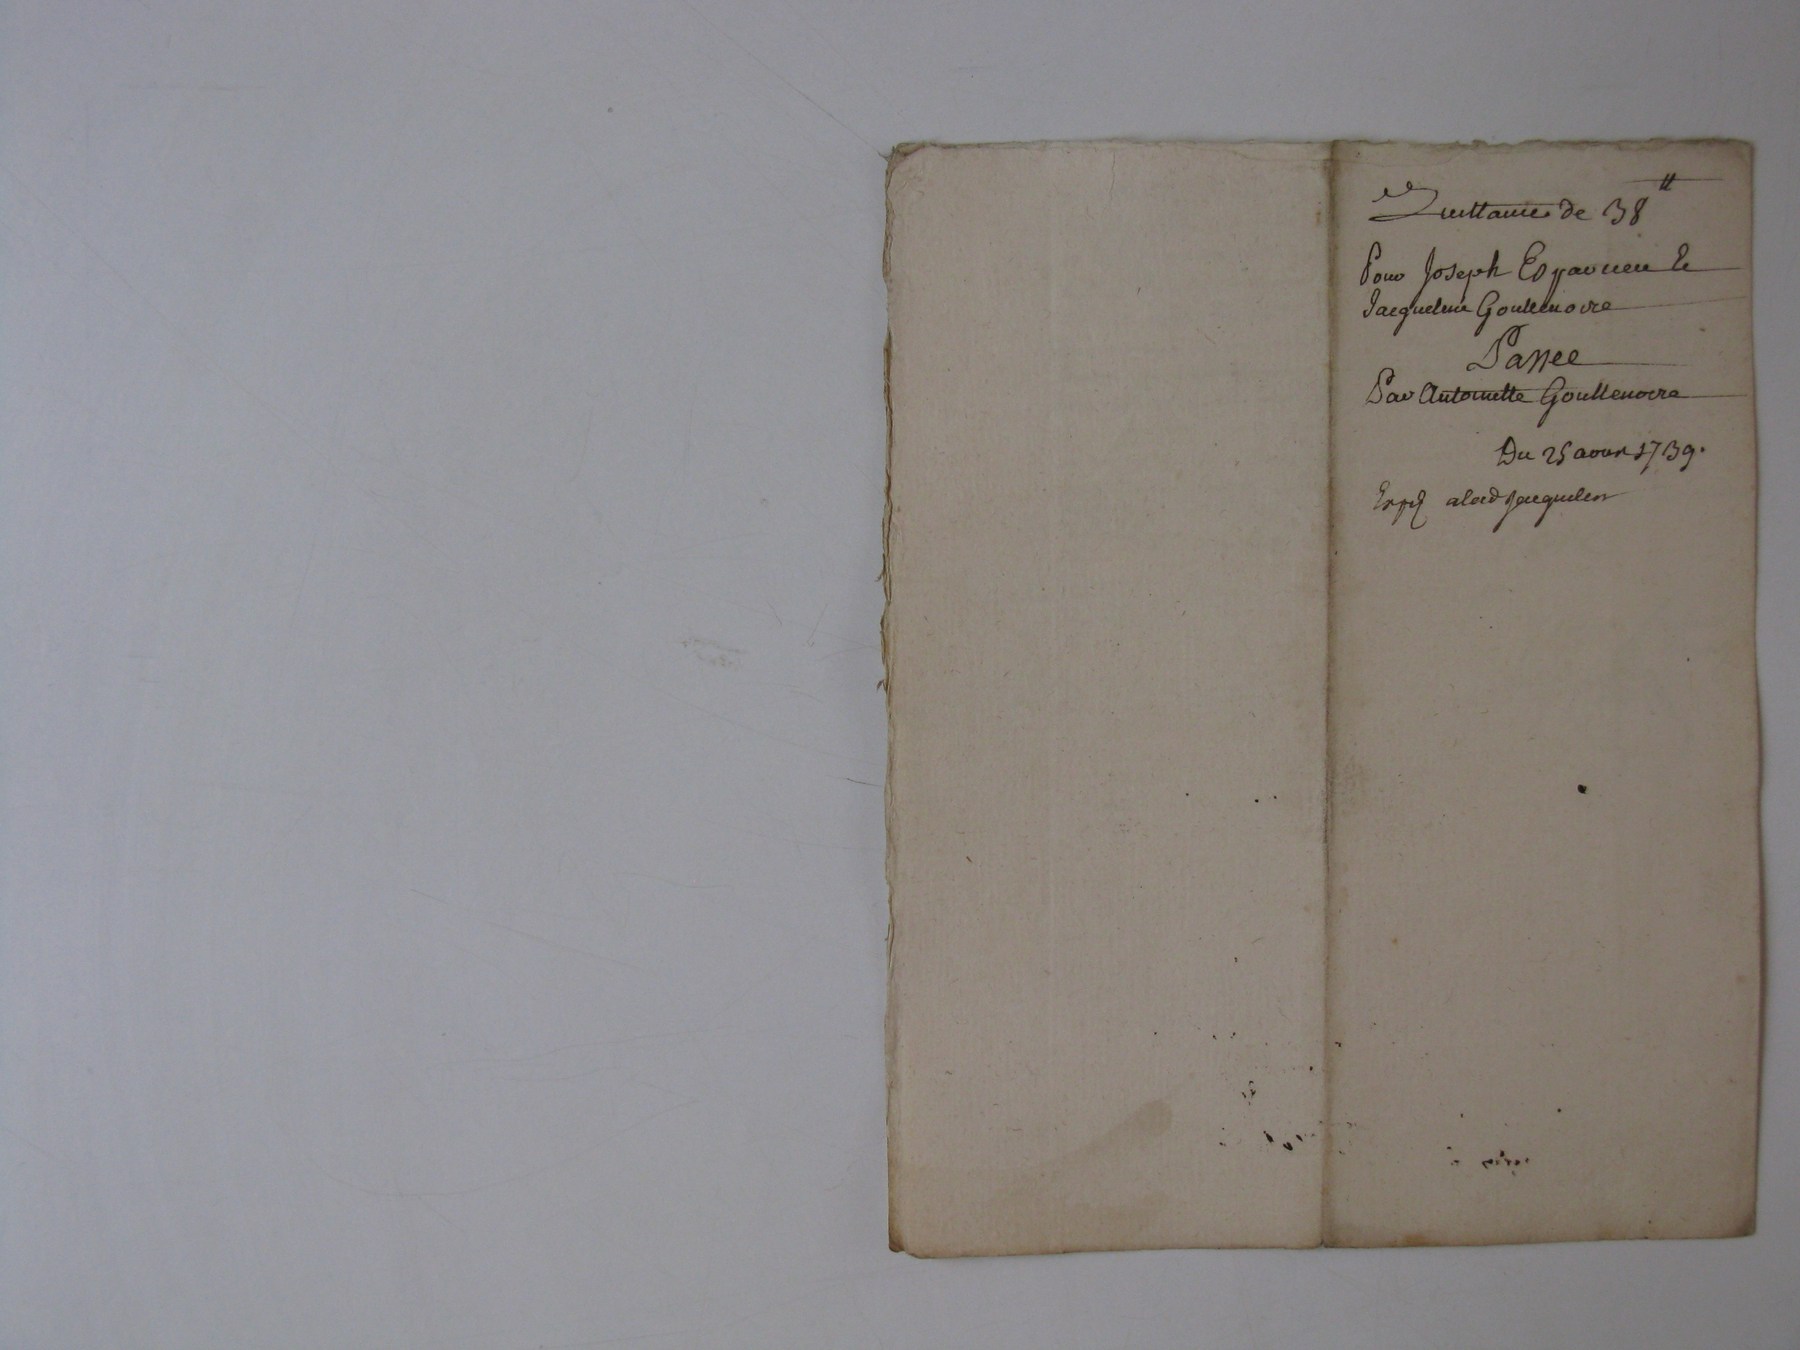 Quittance de 38 ₶
Pour Joseph Esparcieu Et
Jacqueline Gouttenoire
Passee
Par Antoinette Gouttenoire
Du 25 aoust 1739.
Exped a lad Jacqueline